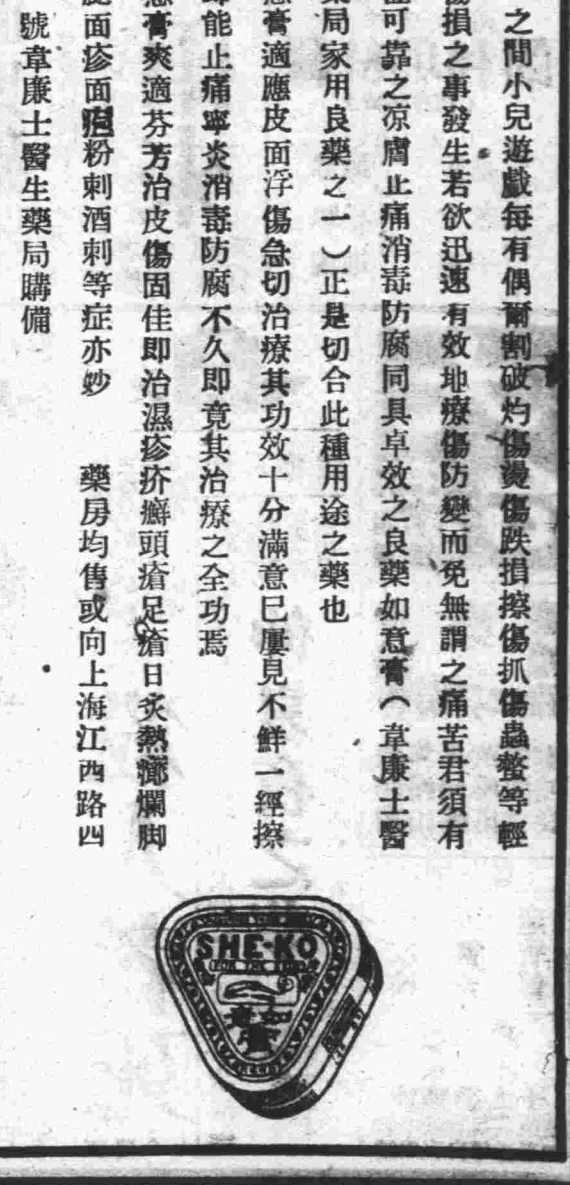 之間小兒遊戲每有偶爾割破灼傷燙傷跌損擦傷抓傷蟲螫等輕
損之事發生若欲迅速有效地療傷防變而免無謂之痛苦君須有
可靠之凉膚止痛消毒防腐同具卓效之良藥如意膏（韋廉士醫
局家用良藥之一）正是切合此種用途之藥也
膏適應皮面浮傷急切治療其功效十分滿意已屢見不鮮一經擦
能止痛寧炎消毒防腐不久即竟其治療之全功焉
膏爽適芬芳治皮傷固佳即治濕疹疥癬頭瘡足瘡日炙熱癤爛脚
面疹面皰粉刺酒刺等症亦妙 藥房均售或向上海江西路四
號韋廉士醫生藥局購備
SHE-KO
如意
膏